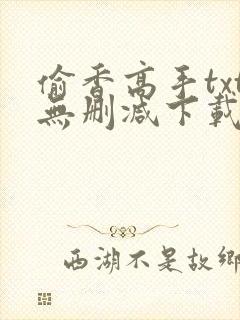 偷香高手txt
無刪減下載
西湖不是故鄉